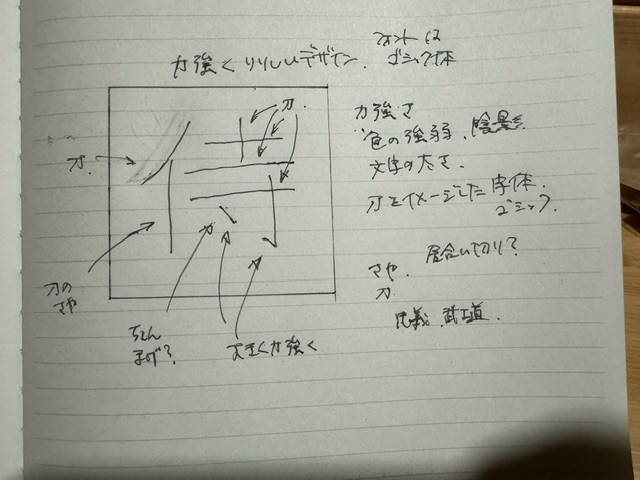 力強くりりしいデザイン.
フォントは
ゴシック体
刀.
侍
刀.
刀の
さや
ちょん
まげ?
大きく力強く
力強さ
色の強弱、陰影.
文字の大きさ.
刀をイメージした字体.
ゴシック.
居合い切り?
さや.
刀
忠義、武士道.